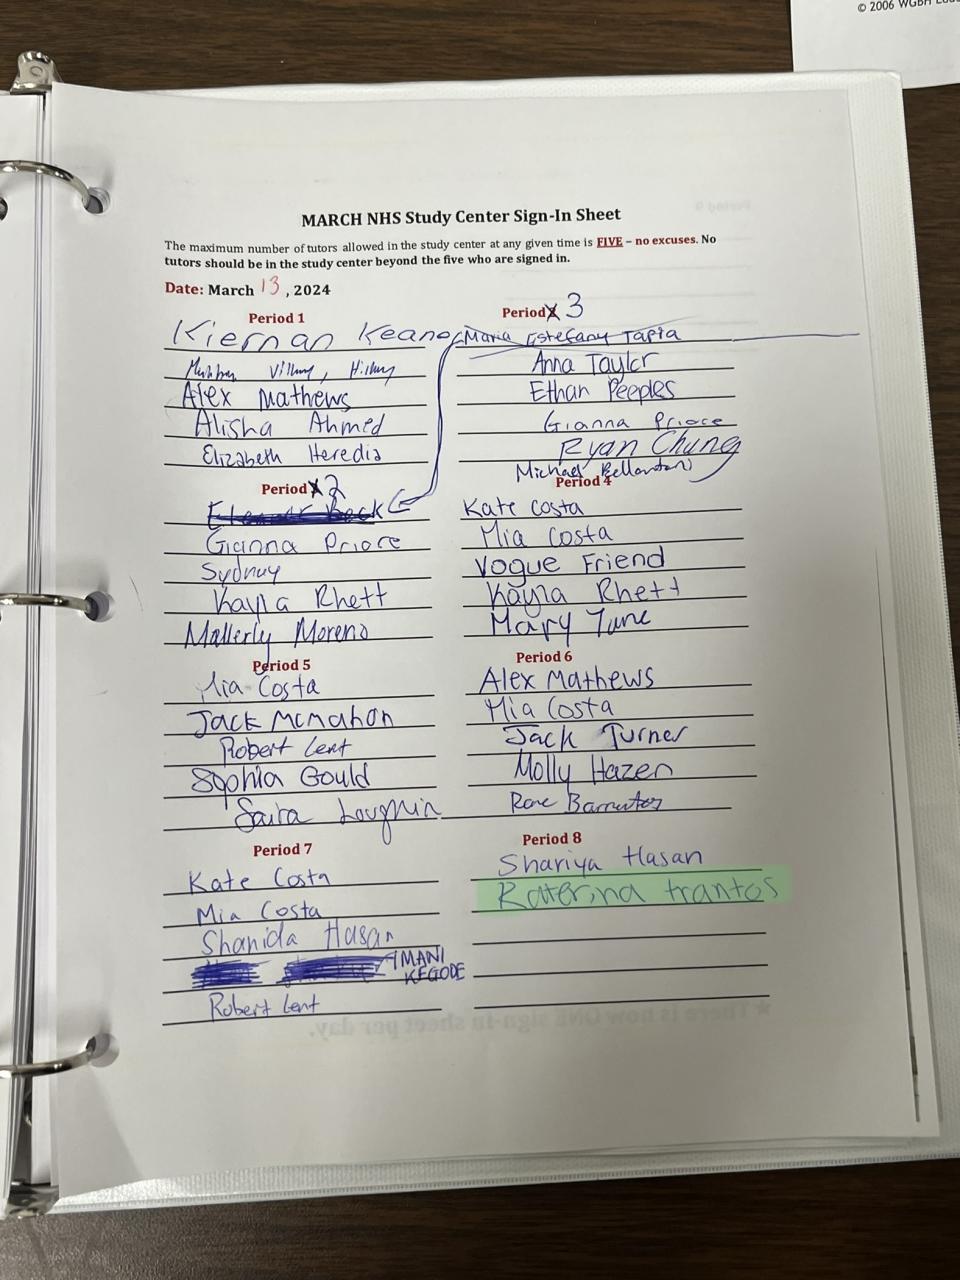 © 2006 WGBH
MARCH NHS Study Center Sign-In Sheet
The maximum number of tutors allowed in the study center at any given time is FIVE – no excuses. No
tutors should be in the study center beyond the five who are signed in.
Date: March 13, 2024
Period 1
Kiernan Keane
Alex Mathews
Alisha Ahmed
Elizabeth Heredia
Period 3
Maria Estefany Tapia
Anna Taylor
Ethan Peeples
Gianna Priore
Ryan Chung
Michael Bellantoni
Period 2
Gianna Priore
Sydney
Kayla Rhett
Mallerly Moreno
Period 4
Kate Costa
Mia Costa
Vogue Friend
Kayla Rhett
Mary Tune
Period 5
Mia Costa
Jack McMahon
Robert Lent
Sophia Gould
Saira Loughlin
Period 6
Alex Mathews
Mia Costa
Jack Turner
Molly Hazen
Period 7
Kate Costa
Mia Costa
Shanida Hasan
IMANI
KEGODE
Robert Lent
Period 8
Shariya Hasan
Katerina trantos